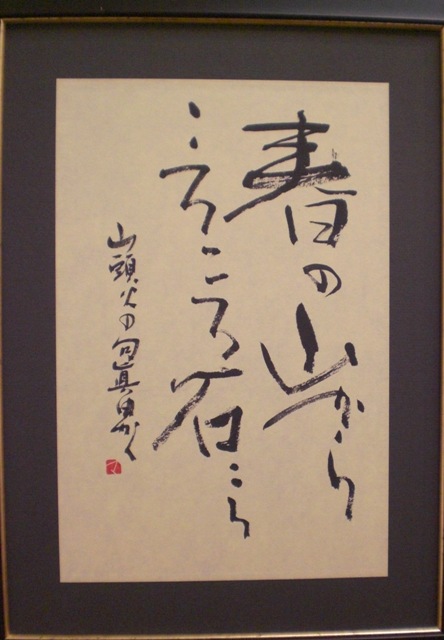 春の山から
ころころ石ころ
山頭火の句真由かく